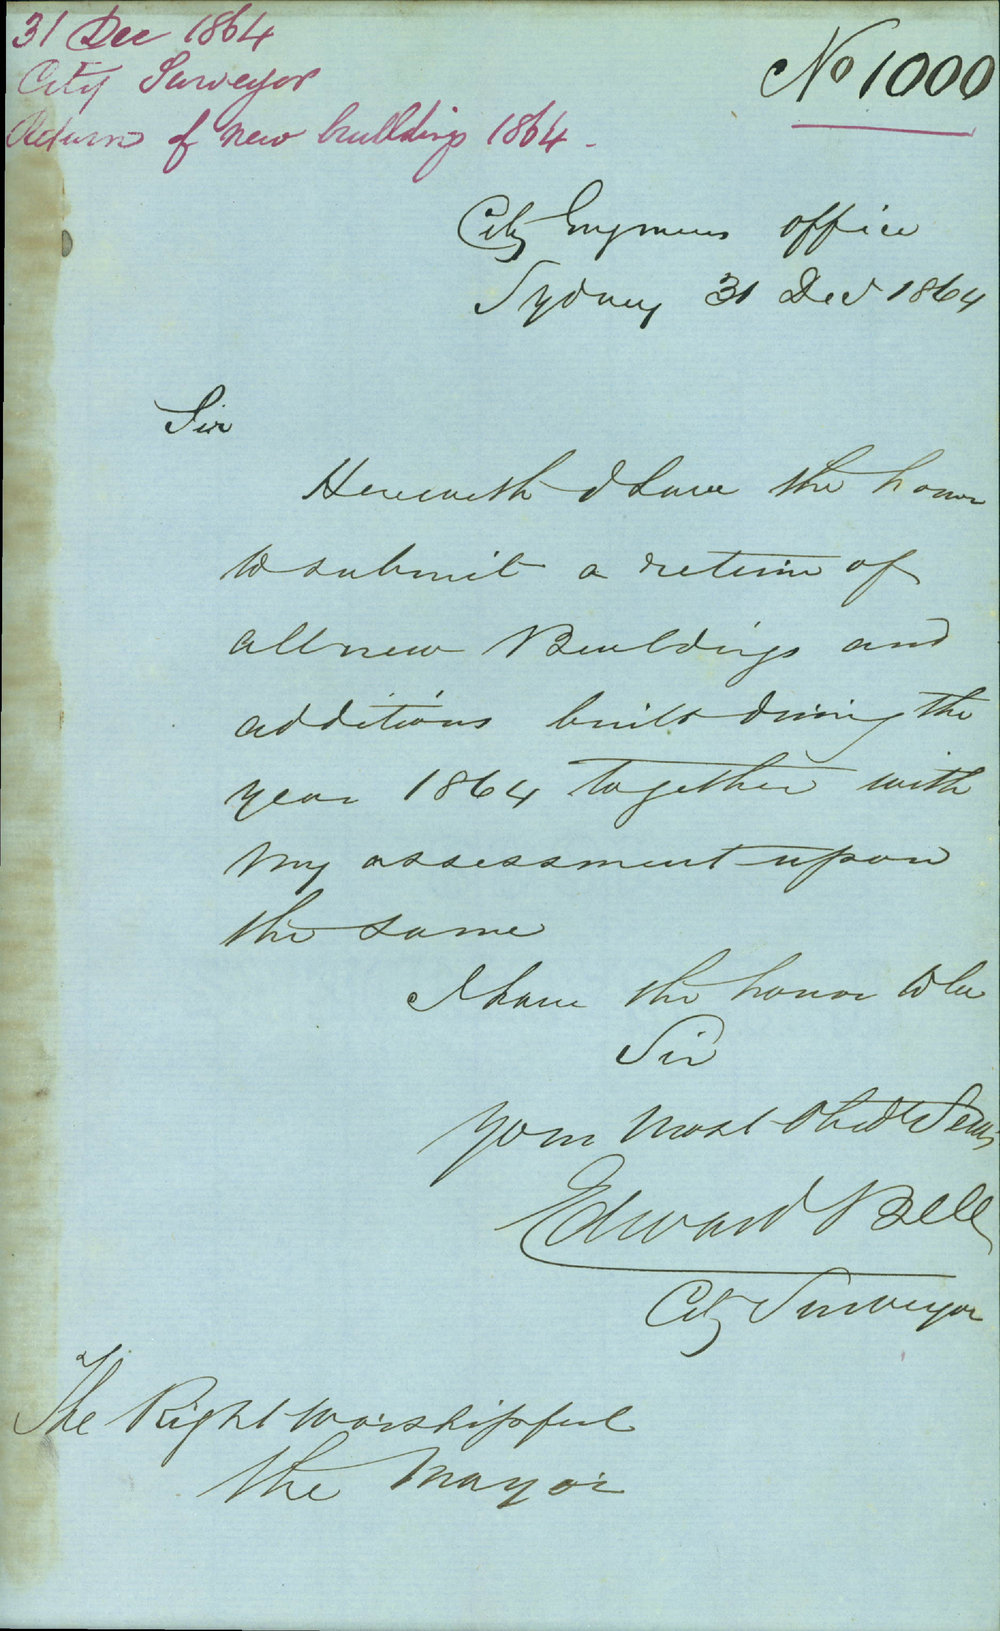 31 Dec 1864
City Surveyor
Return of new buildings 1864 -
No 1000
City Engineers office
Sydney 31 Dec 1864
Sir
Herewith I have the honor
to submit a return of
all new Buildings and
additions built during the
year 1864 together with
my assessment upon
the same
I have the honor to be
Sir
Your most Obedt Servt
Edward Bell
City Surveyor
The Right Worshipful
the Mayor